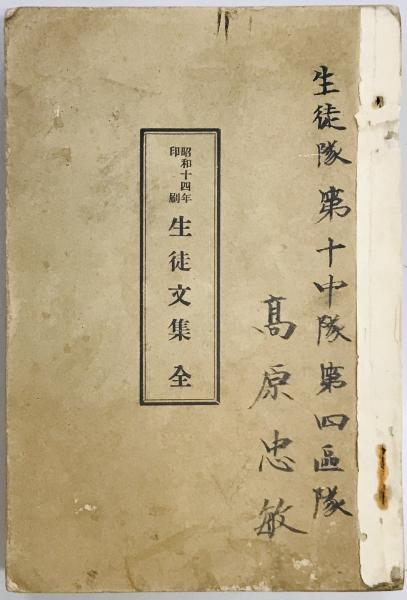 生徒隊第十中隊第四區隊
髙原忠敏
昭和十四年
印刷
生徒文集 全